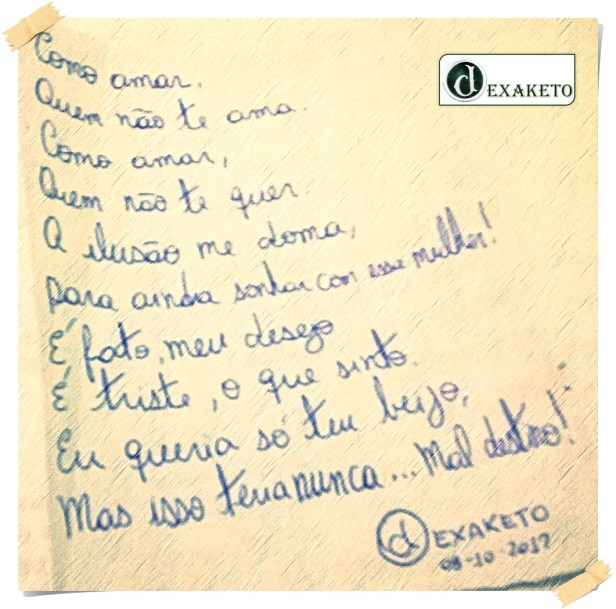 dEXAKETO
Como amar,
Quem não te ama.
Como amar,
Quem não te quer.
A ilusão me doma,
para ainda sonhar com esse mulher!
É fato, meu desejo
É triste, o que sinto.
Eu queria só teu beijo,
Mas isso teria nunca... Mal destino!
dEXAKETO
08-10-2017